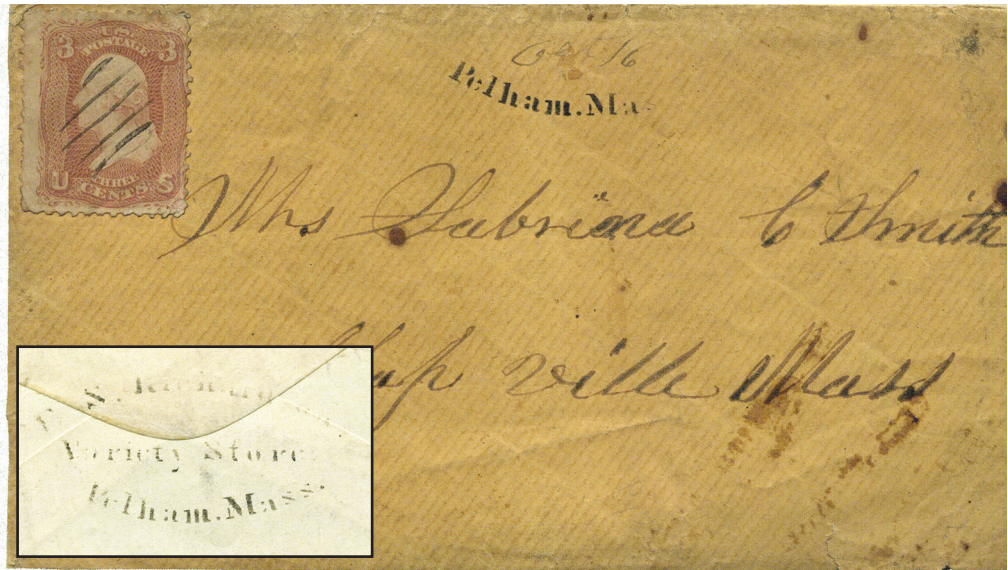 3 U.S. 3
POSTAGE
THREE
U CENTS S
Oct 16
Pelham. Mas
Mrs Sabrina C Smith
ville Mass
Variety Store
Pelham. Mass.